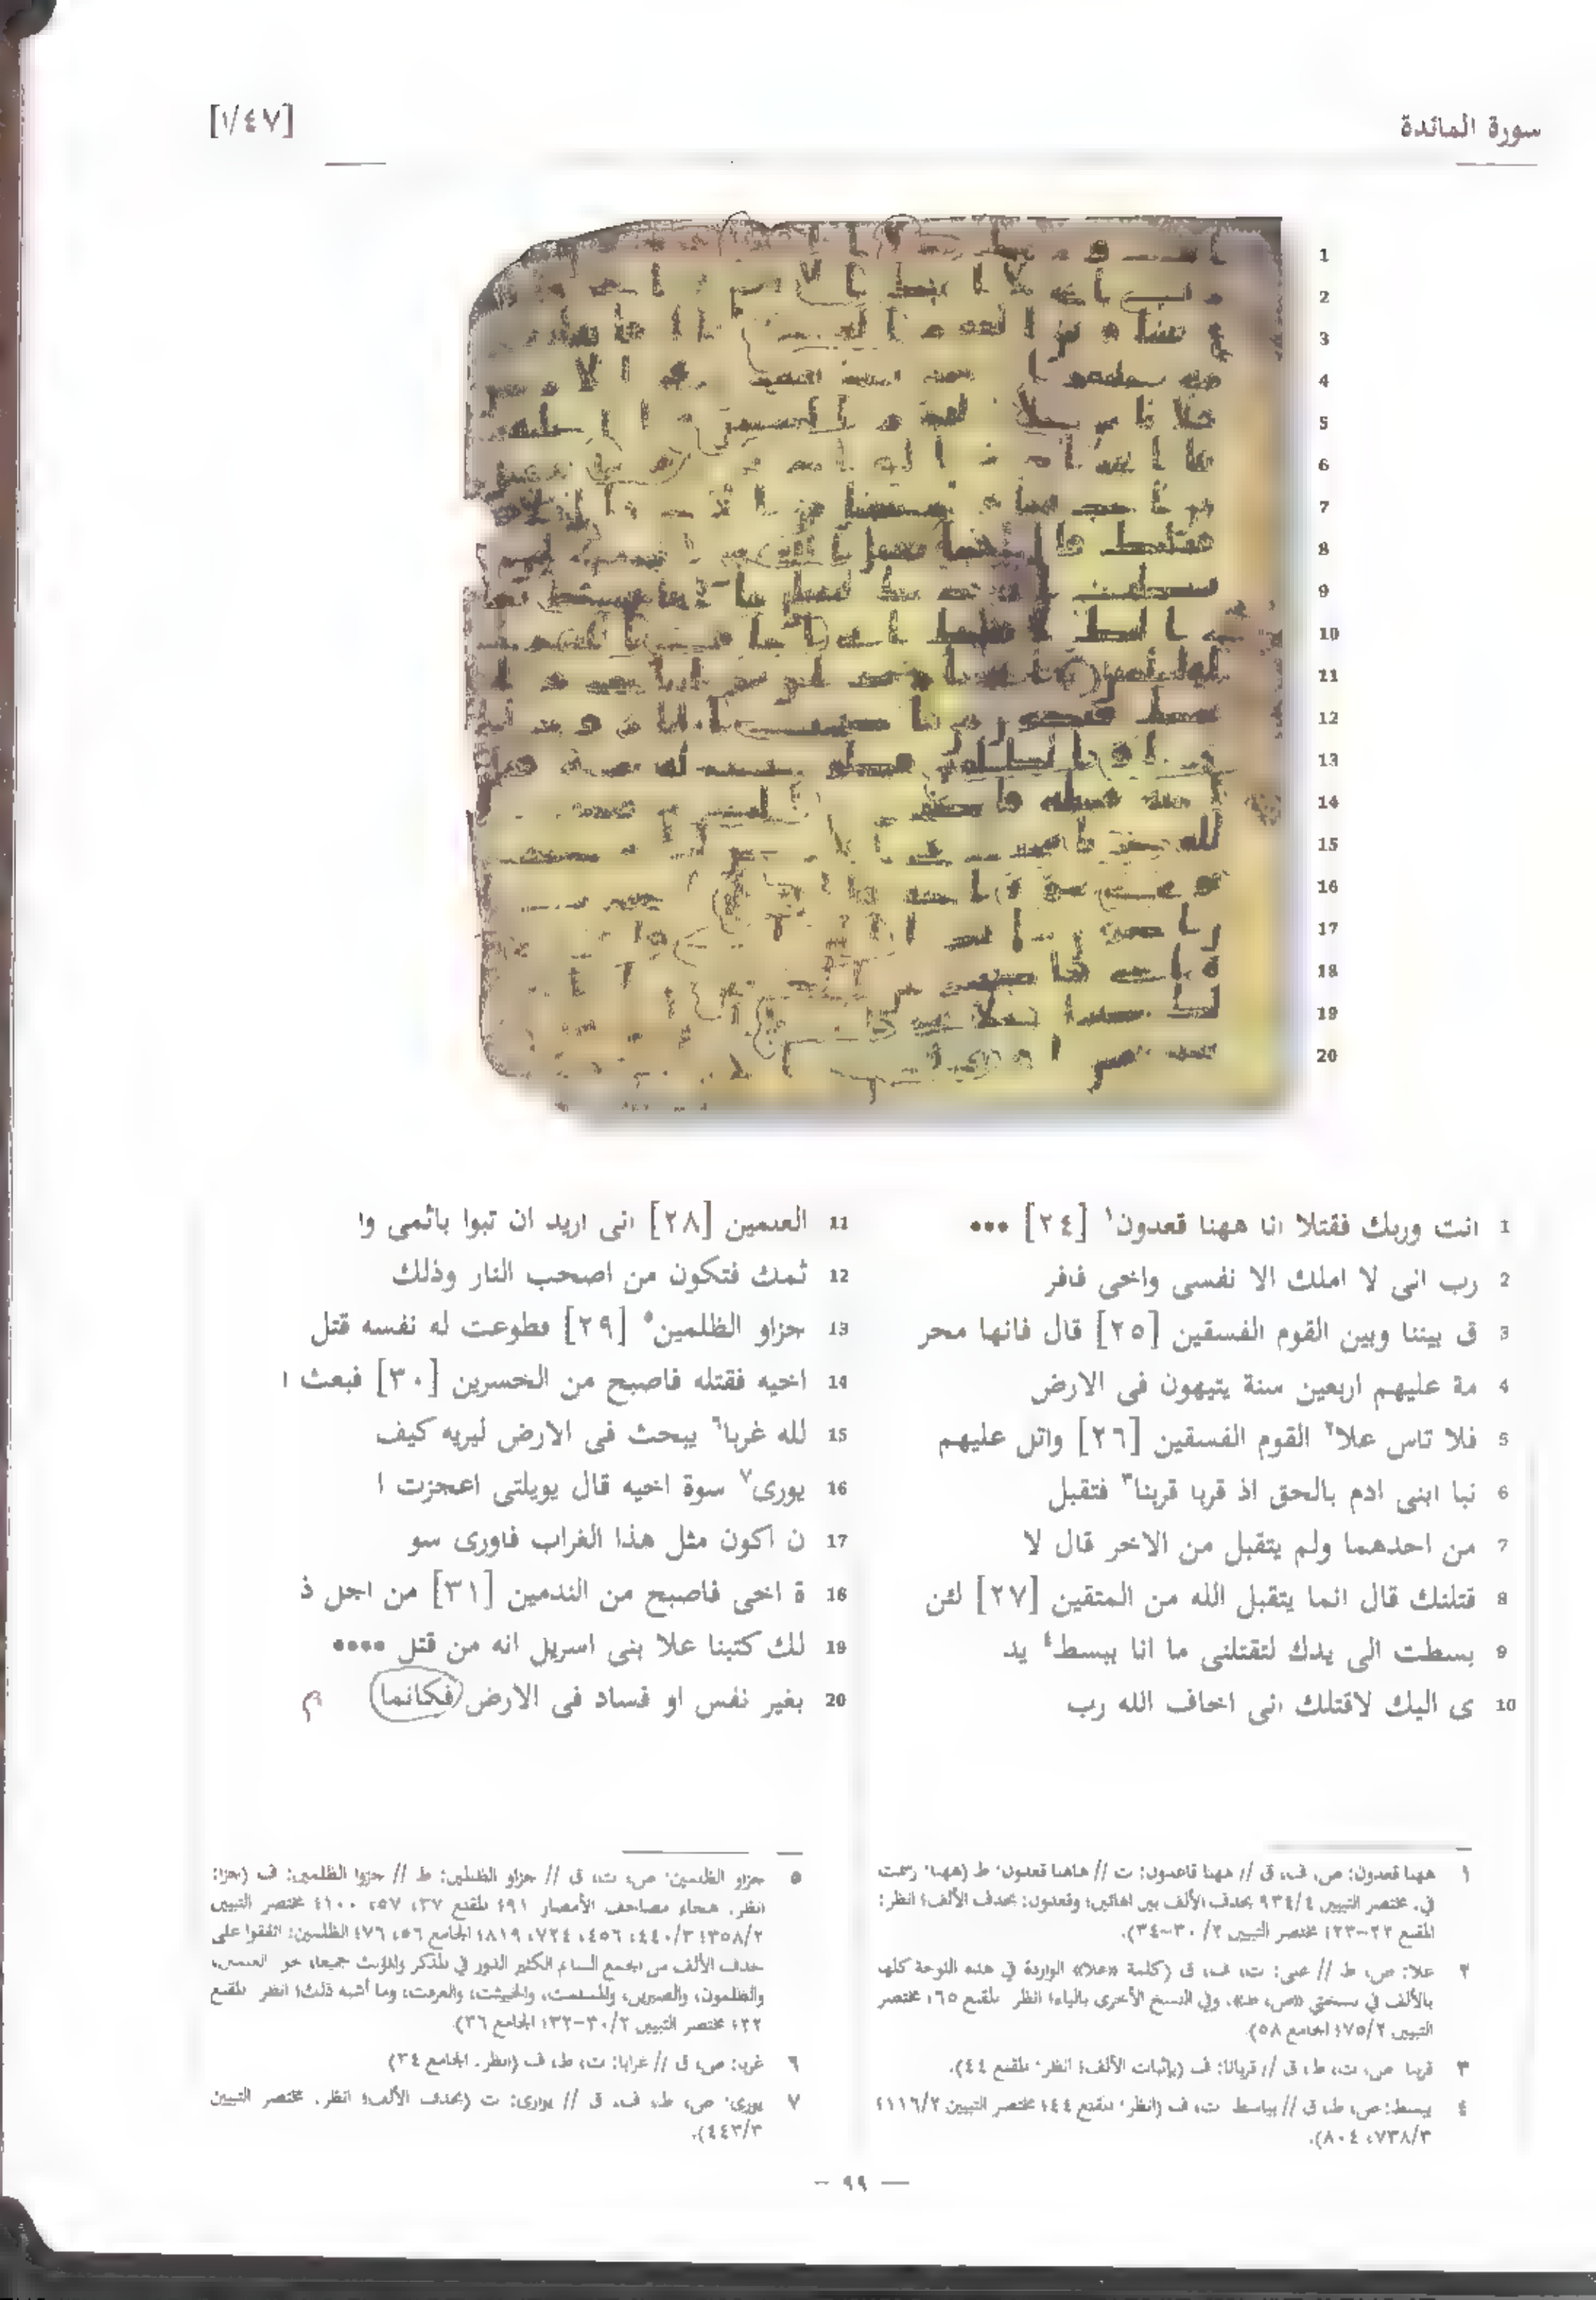 سورة المائدة
[١/٤٧]
1 انت وربك فقتلا انا ههنا قعدون١ [٢٤] •••
2 رب انى لا املك الا نفسى واخى فافر
3 ق بيننا وبين القوم الفسقين [٢٥] قال فانها محر
4 مة عليهم اربعين سنة يتيهون فى الارض
5 فلا تاس علا٢ القوم الفسقين [٢٦] واتل عليهم
6 نبا ابنى ادم بالحق اذ قربا قربنا٣ فتقبل
7 من احدهما ولم يتقبل من الاخر قال لا
8 قتلنك قال انما يتقبل الله من المتقين [٢٧] لئن
9 بسطت الى يدك لتقتلنى ما انا ببسط٤ يد
10 ى اليك لاقتلك انى اخاف الله رب
11 العلمين [٢٨] انى اريد ان تبوا باثمى وا
12 ثمك فتكون من اصحب النار وذلك
13 جزاو الظلمين٥ [٢٩] فطوعت له نفسه قتل
14 اخيه فقتله فاصبح من الخسرين [٣٠] فبعث ا
15 لله غربا٦ يبحث فى الارض ليريه كيف
16 يورى٧ سوة اخيه قال يويلتى اعجزت ا
17 ن اكون مثل هذا الغراب فاورى سو
18 ة اخى فاصبح من الندمين [٣١] من اجل ذ
19 لك كتبنا علا بنى اسريل انه من قتل ••••
20 بغير نفس او فساد فى الارض فكانما
١ ههنا قعدون: ص، ف، ق // ههنا قاعدون: ت // هاهنا قعدون: ط (ههنا: رسمت
في مختصر التبيين ٩٣٤/٤ بحذف الألف بين الهائين؛ وقعدون: بحذف الألف؛ انظر:
المقنع ٢٢-٢٣؛ مختصر التبيين ٣٠/٢-٣٤).
٢ علا: ص، ط // على: ت، ف، ق (كلمة «علا» الواردة في هذه اللوحة كلها
بالألف في نسختي «ص، ط»، وفي النسخ الأخرى بالياء؛ انظر: المقنع ٦٥؛ مختصر
التبيين ٧٥/٢؛ الجامع ٥٨).
٣ قربنا: ص، ت، ط، ق // قربانا: ف (بإثبات الألف؛ انظر: المقنع ٤٤).
٤ ببسط: ص، ط، ق // بباسط: ت، ف (انظر: المقنع ٤٤؛ مختصر التبيين ١١٦/٢؛
٧٣٨/٣، ٨٠٤).
٥ جزاو الظلمين: ص، ت، ق // جزاو الظلمين: ط // جزوا الظلمين: ف (جزا:
انظر: هجاء مصاحف الأمصار ٩١؛ المقنع ٣٧، ٥٧، ١٠٠؛ مختصر التبيين
حذف الألف من الجمع السالم الكثير الدور في المذكر والمؤنث جميعا، نحو: العلمين،
وما أشبه ذلك؛ انظر: المقنع
٢٢؛ مختصر التبيين ٣٠/٢-٣٢؛ الجامع ٣٦).
٦ غربا: ص، ق // غرابا: ت، ط، ف (انظر: الجامع ٣٤)
٧ يورى: ص، ط، ف، ق // يوارى: ت (بحذف الألف؛ انظر: مختصر التبيين
٤٤٣/٣).
— ٩٩ —